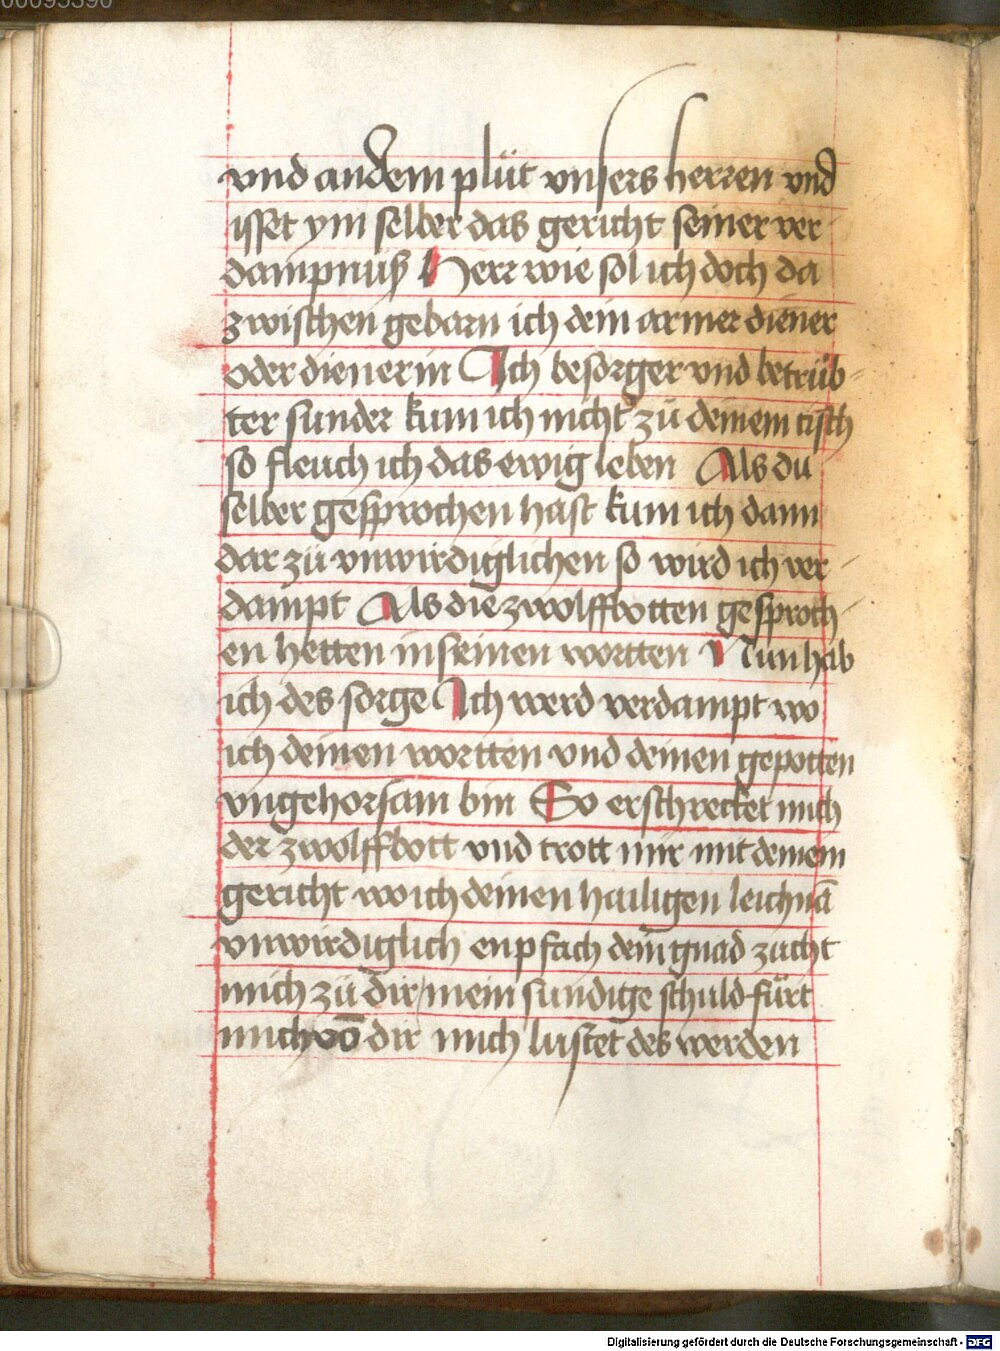 00095390
vnd an dem plüt vnsers herren vnd
isset ym selber das gericht seiner ver
dampnuß Herr wie sol ich doch da
zwischen gebarn ich dein armer diener
oder dienerin Ich besorger vnd betrüb-
ter sunder kum ich nicht zü deinem tisch
so fleuch ich das ewig leben Als du
selber gesprochen hast kum ich dann
dar zü vnwirdiglichen so wird ich ver-
dampt Als die zwolffbotten gesproch-
en hetten in seinen wortten Nun hab
ich des sorge Ich werd verdampt wo
ich deinen wortten vnd deinen gepotten
vngehorsam bin So erschrecket mich
der zwolffbott vnd trott mir mit deinem
gericht wo ich deinen hailigen leichnā
vnwirdiglich enpfach dein gnad zücht
mich zü dir / mein sundige schuld fürt
mich vō dir mich lustet des werden
Digitalisierung gefördert durch die Deutsche Forschungsgemeinschaft - DFG